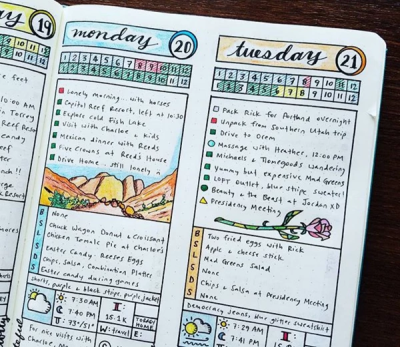 y 19
10 11 12
10:00 AM
Reef Resort
candy
monday 20
1 2 3 4 5 6 7 8 9 10 11 12
1 2 3 4 5 6 7 8 9 10 11 12
Lonely morning... with horses
Capitol Reef Resort, left at 10:30
Explore cold Fish Lake
Visit with Charlee & kids
Mexican dinner with Reeds
Five Crowns at Reeds House
Drive Home... still lonely
B None
S Chuck Wagon Donut & Croissant
L Chicken Tomale Pie at Charlee's
S Easter Candy: Reeses Eggs
D Chips, Salsa, Combination Platter
S Easter candy during games
shorts, purple & black stripe, purple jacket
7:30 AM
7:40 PM
73°/51°
I: 15.1 K
W: travel
E:
HOME
For nice visits with
tuesday 21
1 2 3 4 5 6 7 8 9 10 11 12
1 2 3 4 5 6 7 8 9 10 11 12
Pack Rick for Portland overnight
Unpack from Southern Utah trip
Drive to Orem
Massage with Heather, 12:00 PM
Michaels & Tonegoods wandering
Yummy but expensive Mad Greens
LOFT Outlet, blue stripe sweater!
Beauty & the Beast at Jordan XD
Presidency Meeting
B Two fried eggs with Rick
S Apple & cheese stick
L Mad Greens Salad
S None
D Chips & Salsa at Presidency Meeting
S None
Democracy Jeans, blue glitter sweatshirt
7:29 AM
7:41 PM
I: